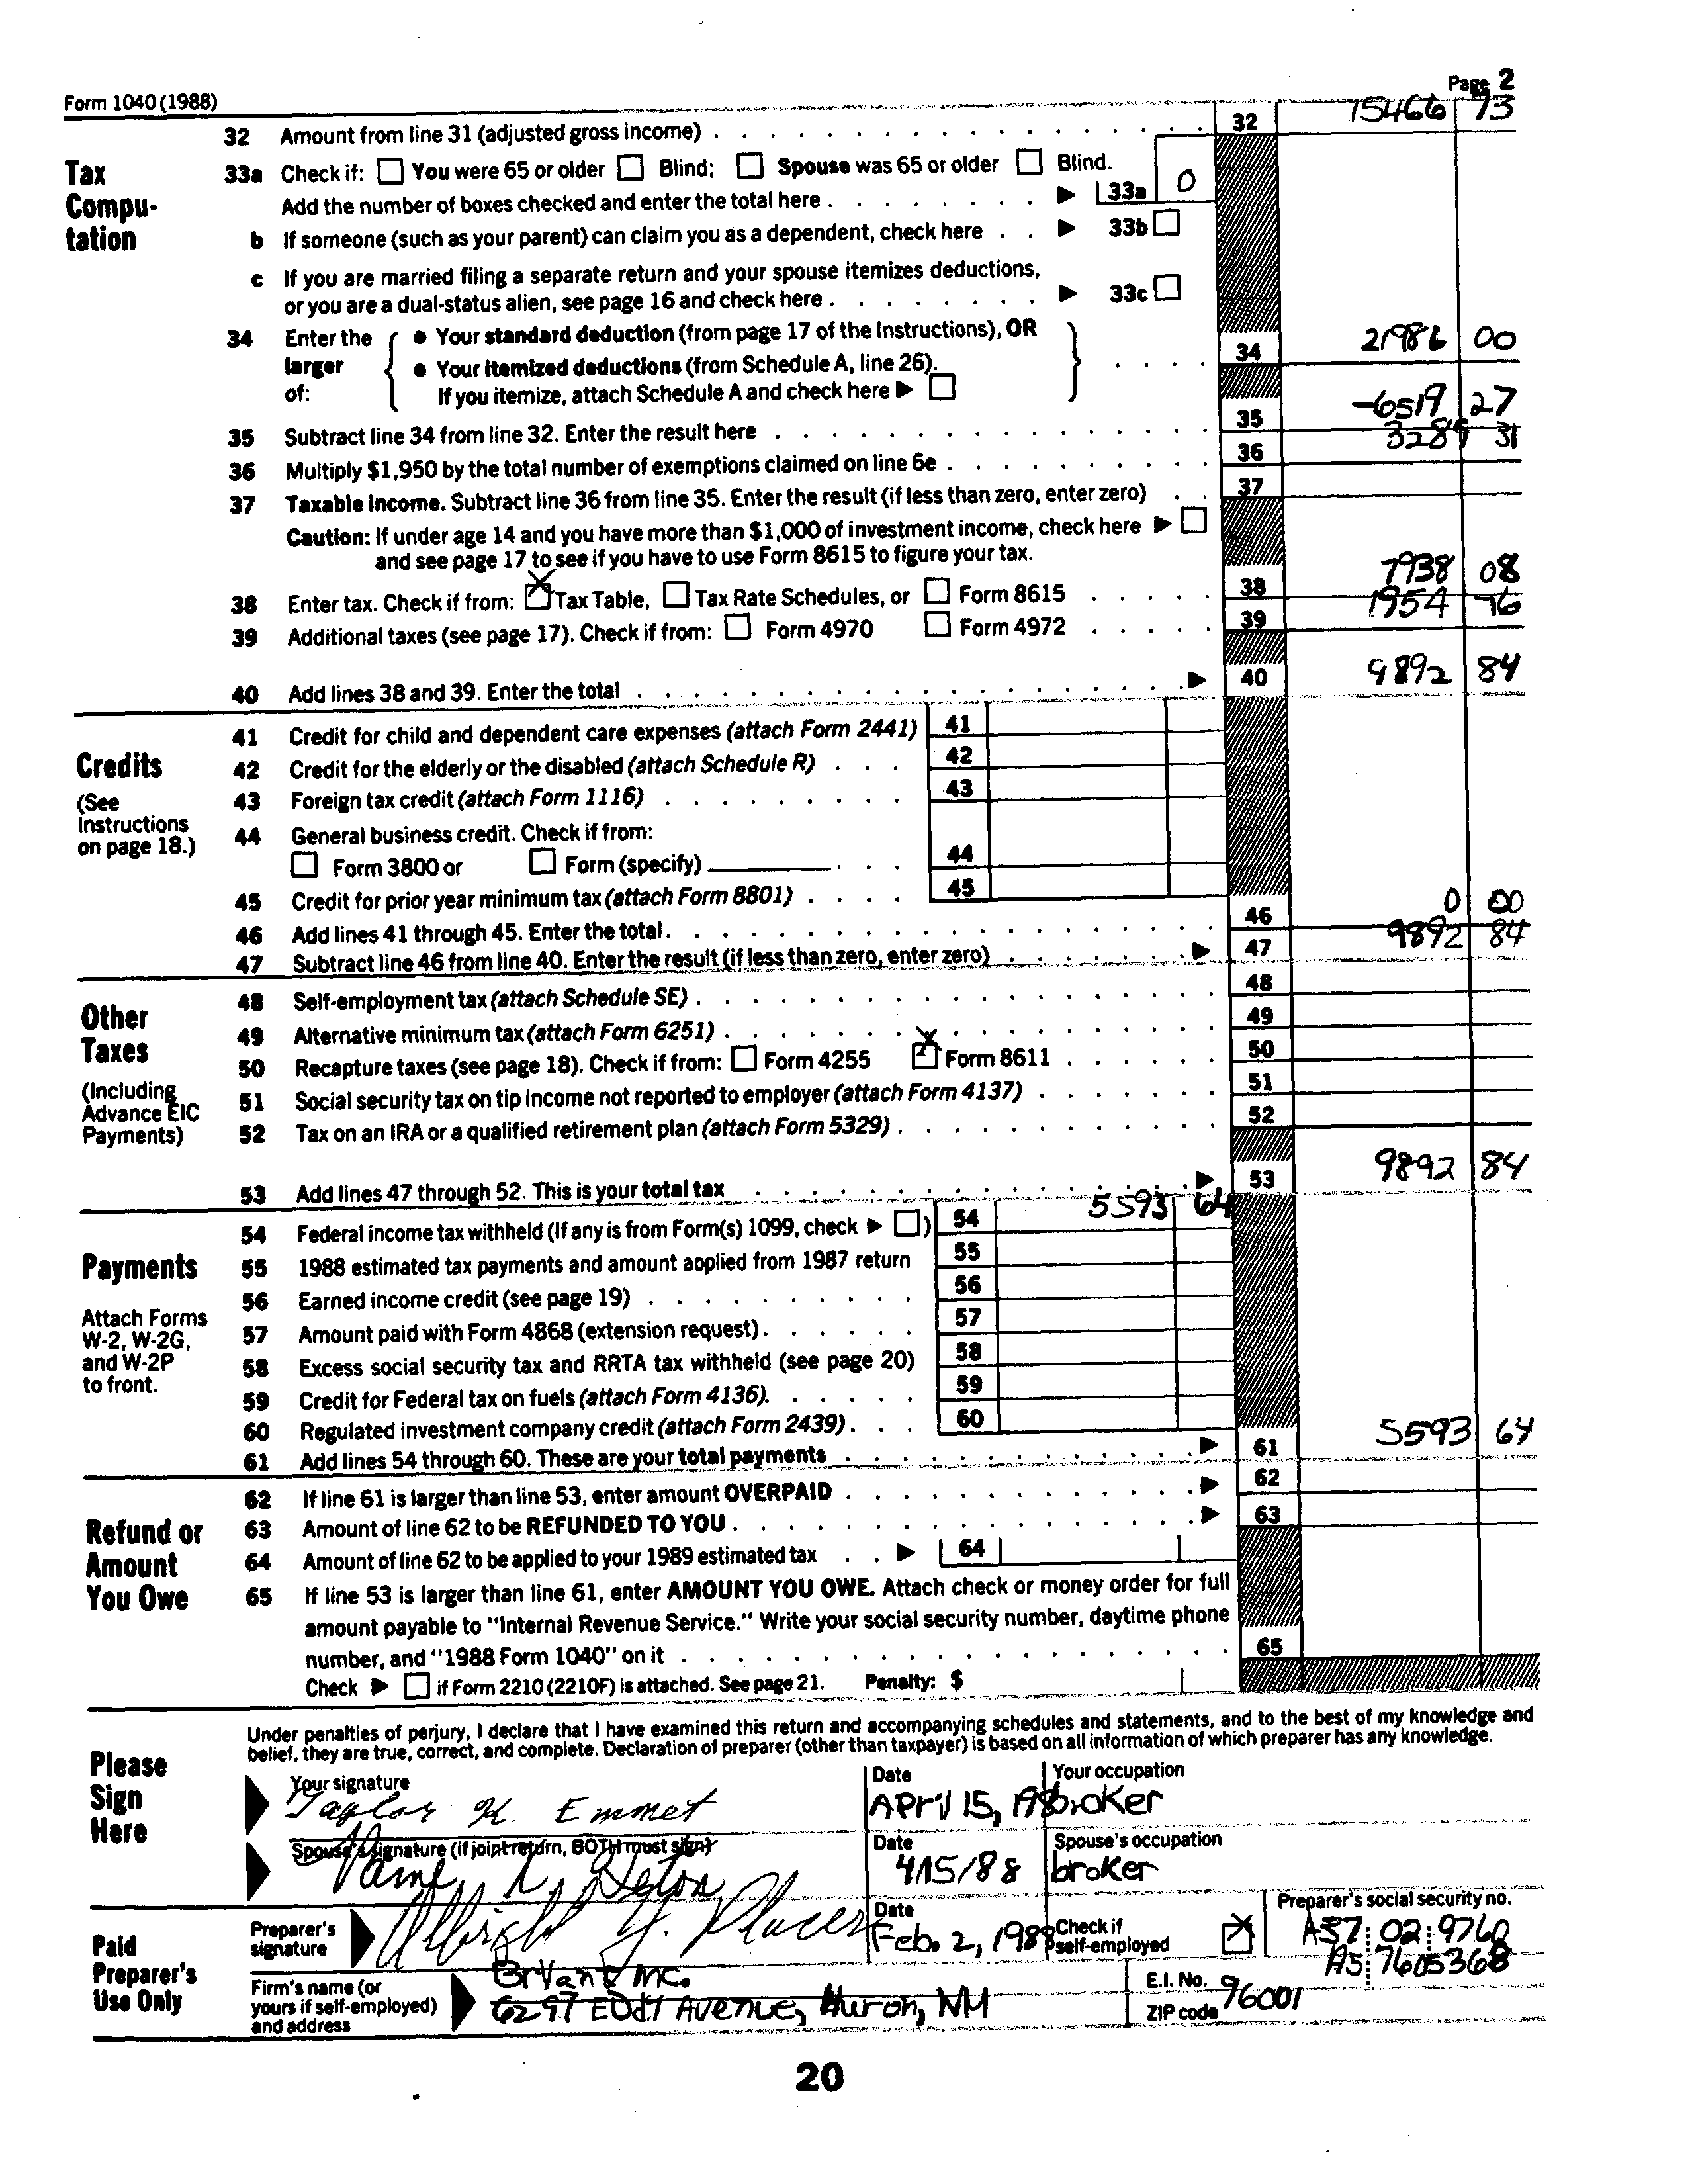 Form 1040 (1988) Page 2
32 Amount from line 31 (adjusted gross income) 32 15466 73
Tax Compu-tation
33a Check if: You were 65 or older Blind; Spouse was 65 or older Blind.
Add the number of boxes checked and enter the total here 33a 0
b If someone (such as your parent) can claim you as a dependent, check here 33b
c If you are married filing a separate return and your spouse itemizes deductions,
or you are a dual-status alien, see page 16 and check here 33c
34 Enter the larger of: • Your standard deduction (from page 17 of the Instructions), OR
• Your itemized deductions (from Schedule A, line 26).
If you itemize, attach Schedule A and check here 34 21986 00
35 Subtract line 34 from line 32. Enter the result here 35 -6519 27
36 Multiply $1,950 by the total number of exemptions claimed on line 6e 36 3289 31
37 Taxable Income. Subtract line 36 from line 35. Enter the result (if less than zero, enter zero) 37
Caution: If under age 14 and you have more than $1,000 of investment income, check here
and see page 17 to see if you have to use Form 8615 to figure your tax.
38 Enter tax. Check if from: Tax Table, Tax Rate Schedules, or Form 8615 38 7938 08
39 Additional taxes (see page 17). Check if from: Form 4970 Form 4972 39 1954 76
40 Add lines 38 and 39. Enter the total 40 9892 84
Credits
(See Instructions on page 18.)
41 Credit for child and dependent care expenses (attach Form 2441) 41
42 Credit for the elderly or the disabled (attach Schedule R) 42
43 Foreign tax credit (attach Form 1116) 43
44 General business credit. Check if from:
Form 3800 or Form (specify) 44
45 Credit for prior year minimum tax (attach Form 8801) 45
46 Add lines 41 through 45. Enter the total 46 0 00
47 Subtract line 46 from line 40. Enter the result (if less than zero, enter zero) 47 9892 84
Other Taxes
(Including Advance EIC Payments)
48 Self-employment tax (attach Schedule SE) 48
49 Alternative minimum tax (attach Form 6251) 49
50 Recapture taxes (see page 18). Check if from: Form 4255 Form 8611 50
51 Social security tax on tip income not reported to employer (attach Form 4137) 51
52 Tax on an IRA or a qualified retirement plan (attach Form 5329) 52
53 Add lines 47 through 52. This is your total tax 53 9892 84
Payments
Attach Forms W-2, W-2G, and W-2P to front.
54 Federal income tax withheld (If any is from Form(s) 1099, check ) 54 5593 64
55 1988 estimated tax payments and amount applied from 1987 return 55
56 Earned income credit (see page 19) 56
57 Amount paid with Form 4868 (extension request) 57
58 Excess social security tax and RRTA tax withheld (see page 20) 58
59 Credit for Federal tax on fuels (attach Form 4136). 59
60 Regulated investment company credit (attach Form 2439) 60
61 Add lines 54 through 60. These are your total payments 61 5593 64
Refund or Amount You Owe
62 If line 61 is larger than line 53, enter amount OVERPAID 62
63 Amount of line 62 to be REFUNDED TO YOU 63
64 Amount of line 62 to be applied to your 1989 estimated tax 64
65 If line 53 is larger than line 61, enter AMOUNT YOU OWE. Attach check or money order for full
amount payable to "Internal Revenue Service." Write your social security number, daytime phone
number, and "1988 Form 1040" on it 65
Check if Form 2210 (2210F) is attached. See page 21. Penalty: $
Please Sign Here
Under penalties of perjury, I declare that I have examined this return and accompanying schedules and statements, and to the best of my knowledge and
belief, they are true, correct, and complete. Declaration of preparer (other than taxpayer) is based on all information of which preparer has any knowledge.
Your signature Date Your occupation
Taylor K. Emmet April 15, broker
Spouse's signature (if joint return, BOTH must sign) Date Spouse's occupation
4/15/88 broker
Paid Preparer's Use Only
Preparer's signature Albright Y. Placer Date Feb. 2, 1988 Check if self-employed Preparer's social security no. A37 02 9760
Firm's name (or yours if self-employed) and address Bryant Inc. E.I. No. A5 7605368
6297 Avenue, Huron, NM ZIP code 96001
20